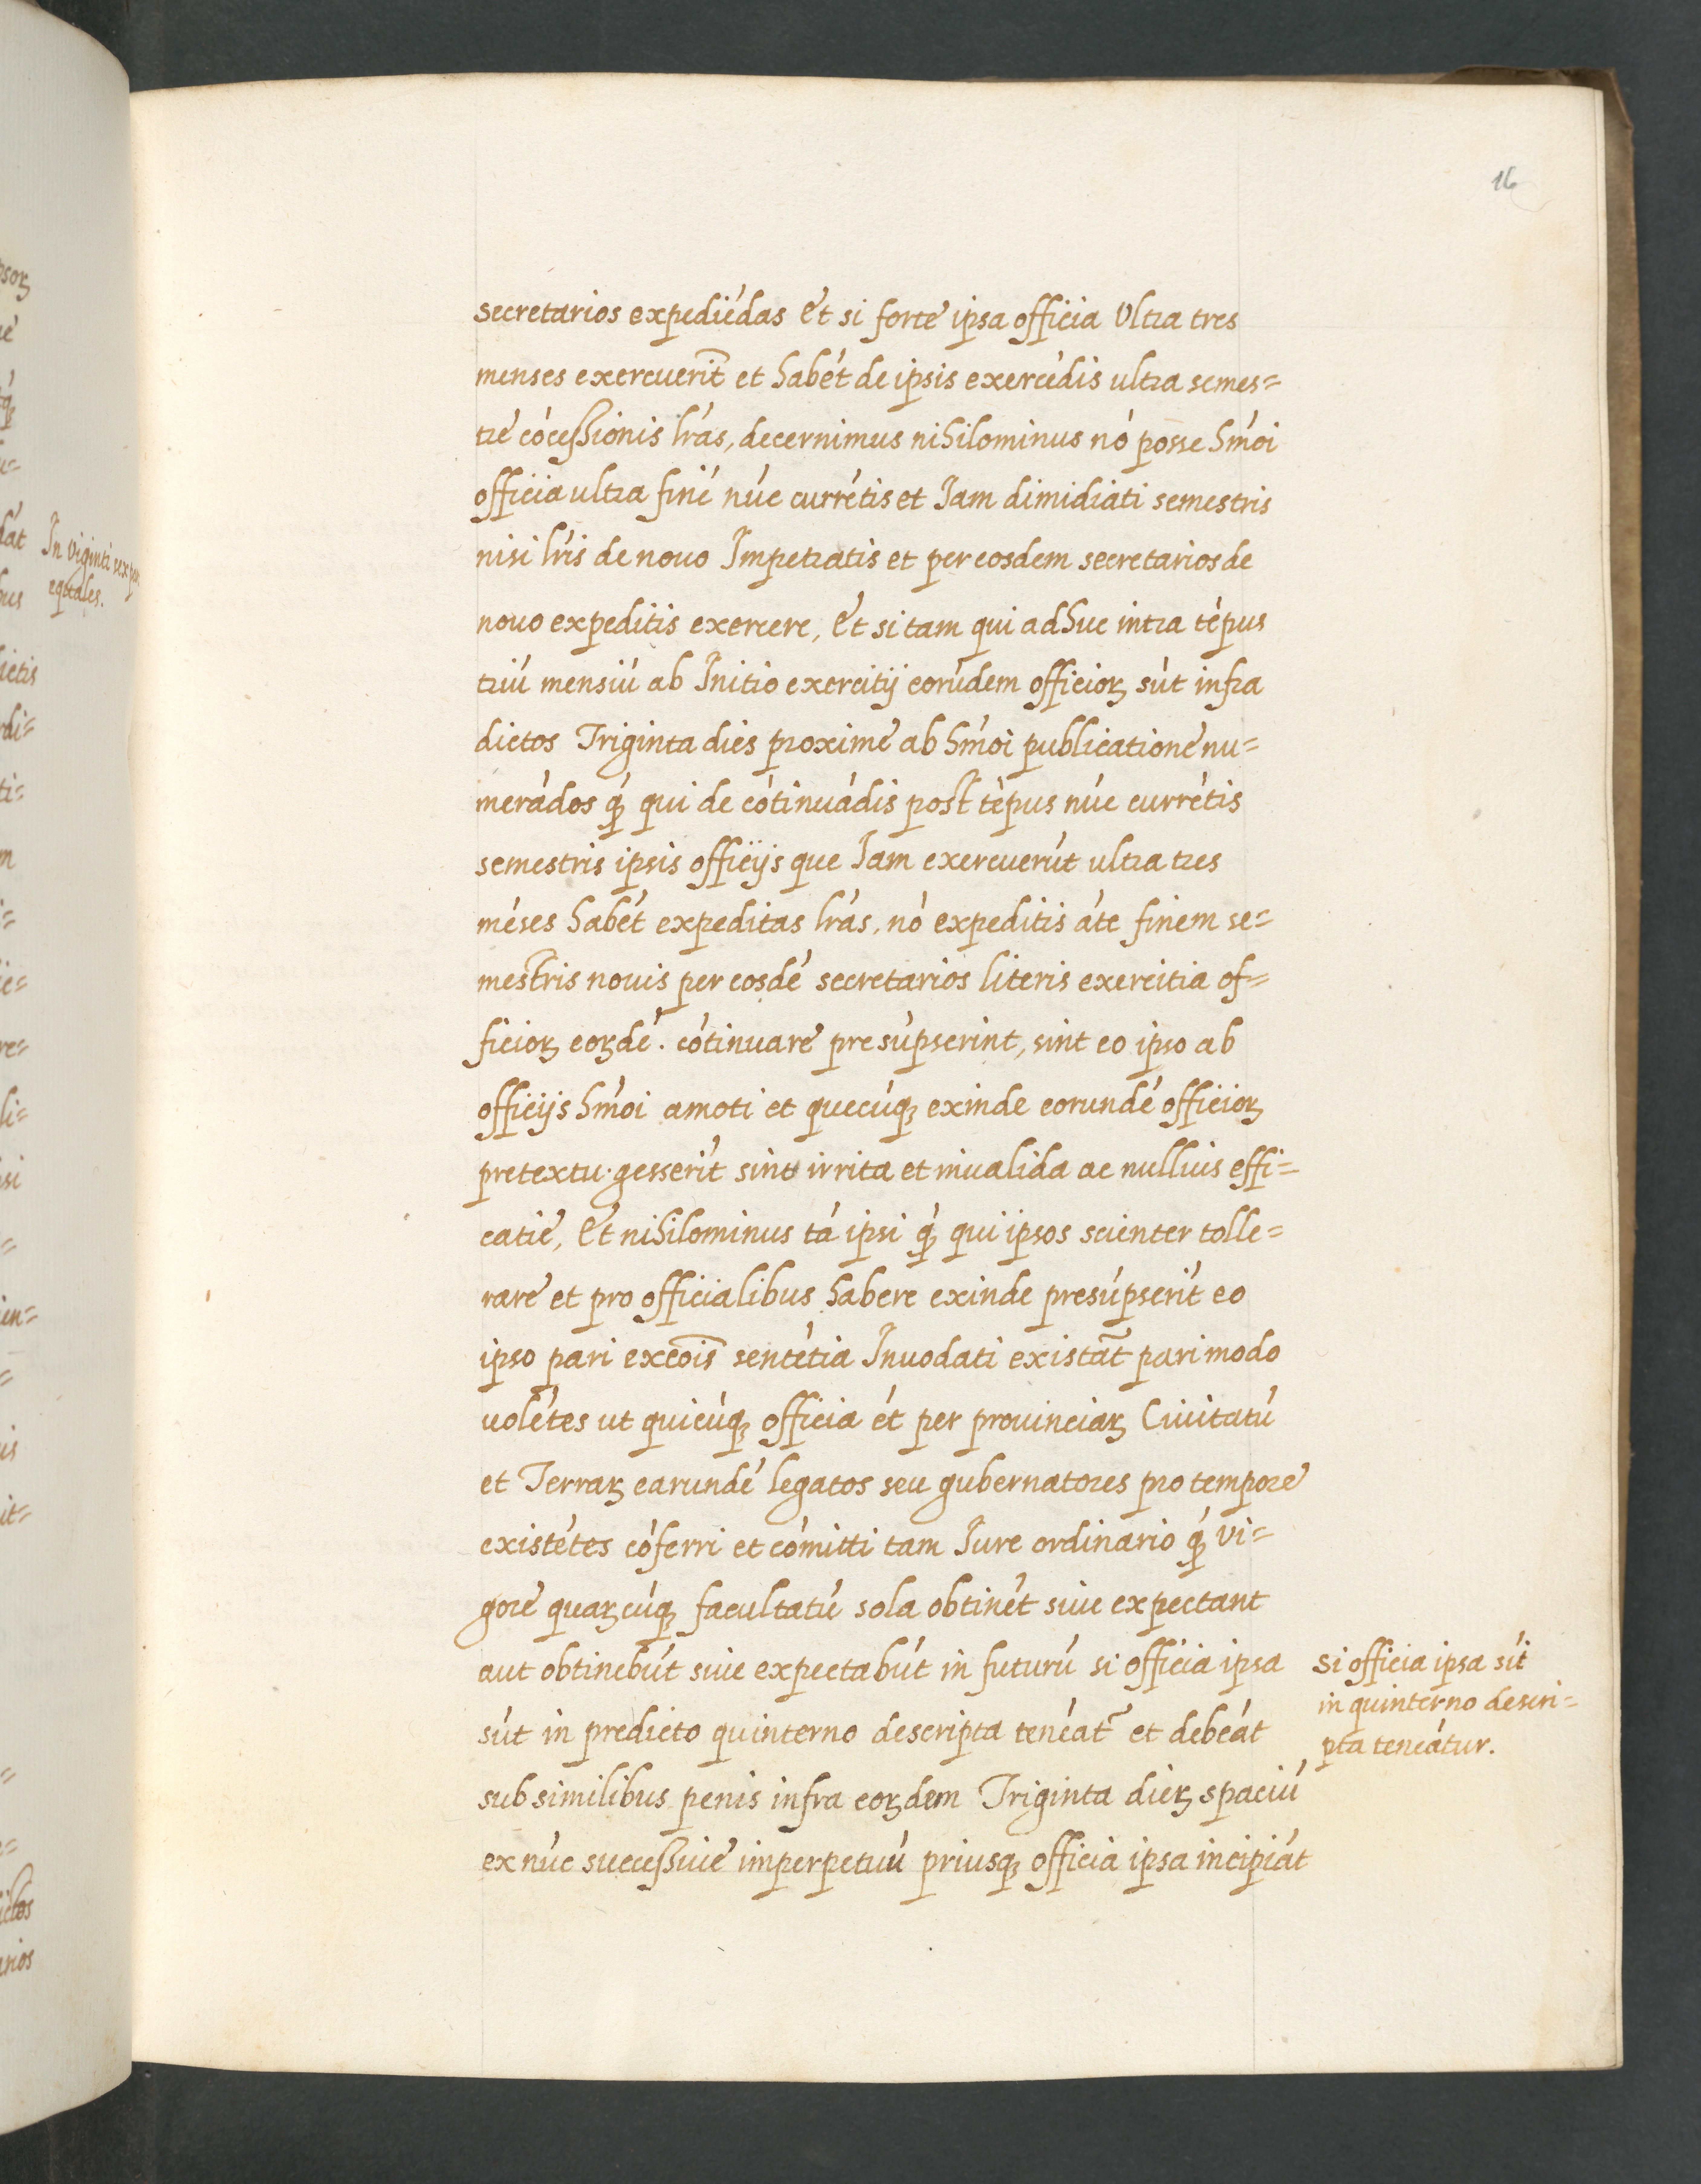 16
secretarios expediédas Et si forte ipsa officia Ultra tres
menses exercuerit̃ et habét de ipsis exercédis ultra semes=
tré cócessionis lr̃as, decernimus nihilominus nó posse hm̃oi
officia ultra finé núc currétis et Iam dimidiati semestris
nisi lr̃is de nouo Impetratis et per eosdem secretarios de
nouo expeditis exercere, Et si tam qui adhuc intra tépus
triú mensiú ab Initio exercitij eorúdem officioꝝ sút infra
dictos Triginta dies proxime ab hm̃oi publicatione nu=
merádos q́ qui de cótinuádis post tépus núc currétis
semestris ipsis officijs que Iam exercuerút ultra tres
méses habét expeditas lr̃as, nó expeditis áte finem se=
mestris nouis per eosdé secretarios literis exercitia of=
ficioꝝ eoꝝdé. cótinuare presúpserint, sint eo ipso ab
officijs hm̃oi amoti et quecúqꝫ exinde eorundé officioꝝ
pretextu gesserít sint irrita et inualida ac nullius effi=
catie, Et nihilominus tá ipsi q́ qui ipsos scienter tolle=
rare et pro officialibus habere exinde presúpserít eo
ipso pari excõis sentétia Inuodati existát̃ pari modo
uolétes ut quicúqꝫ officia ét per prouinciaꝝ Ciuitatú
et Terraꝝ earundé legatos seu gubernatores pro tempore
existétes cóferri et cómitti tam Iure ordinario q́ vi=
gore quaꝝcúqꝫ facultatú sola obtinét siue expectant
aut obtinebút siue expectabút in futurú si officia ipsa
sút in predicto quinterno descripta teneát̃ et debeát
sub similibus penis infra eoꝝdem Triginta dieꝝ spaciú
ex núc successiue imperpetuú priusqꝫ officia ipsa incipiát
Si officia ipsa sít
in quinterno descri=
pta teneátur.
In viginti sex
equales.